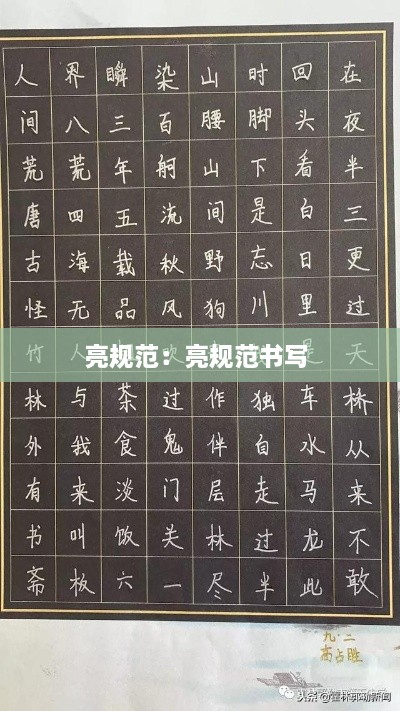 在夜半三更过天桥从来不敢
回头看白日里是车水马龙此
时脚下是忘川独自走过半
山腰山间野狗作伴层林尽
染百舸流秋风吹过鬼门关一
瞬三年五载品茶食淡饭六
界八荒四海无人与我来叫板
人间荒唐古怪竹林外有书斋
亮规范：亮规范书写
九·二
高占胜